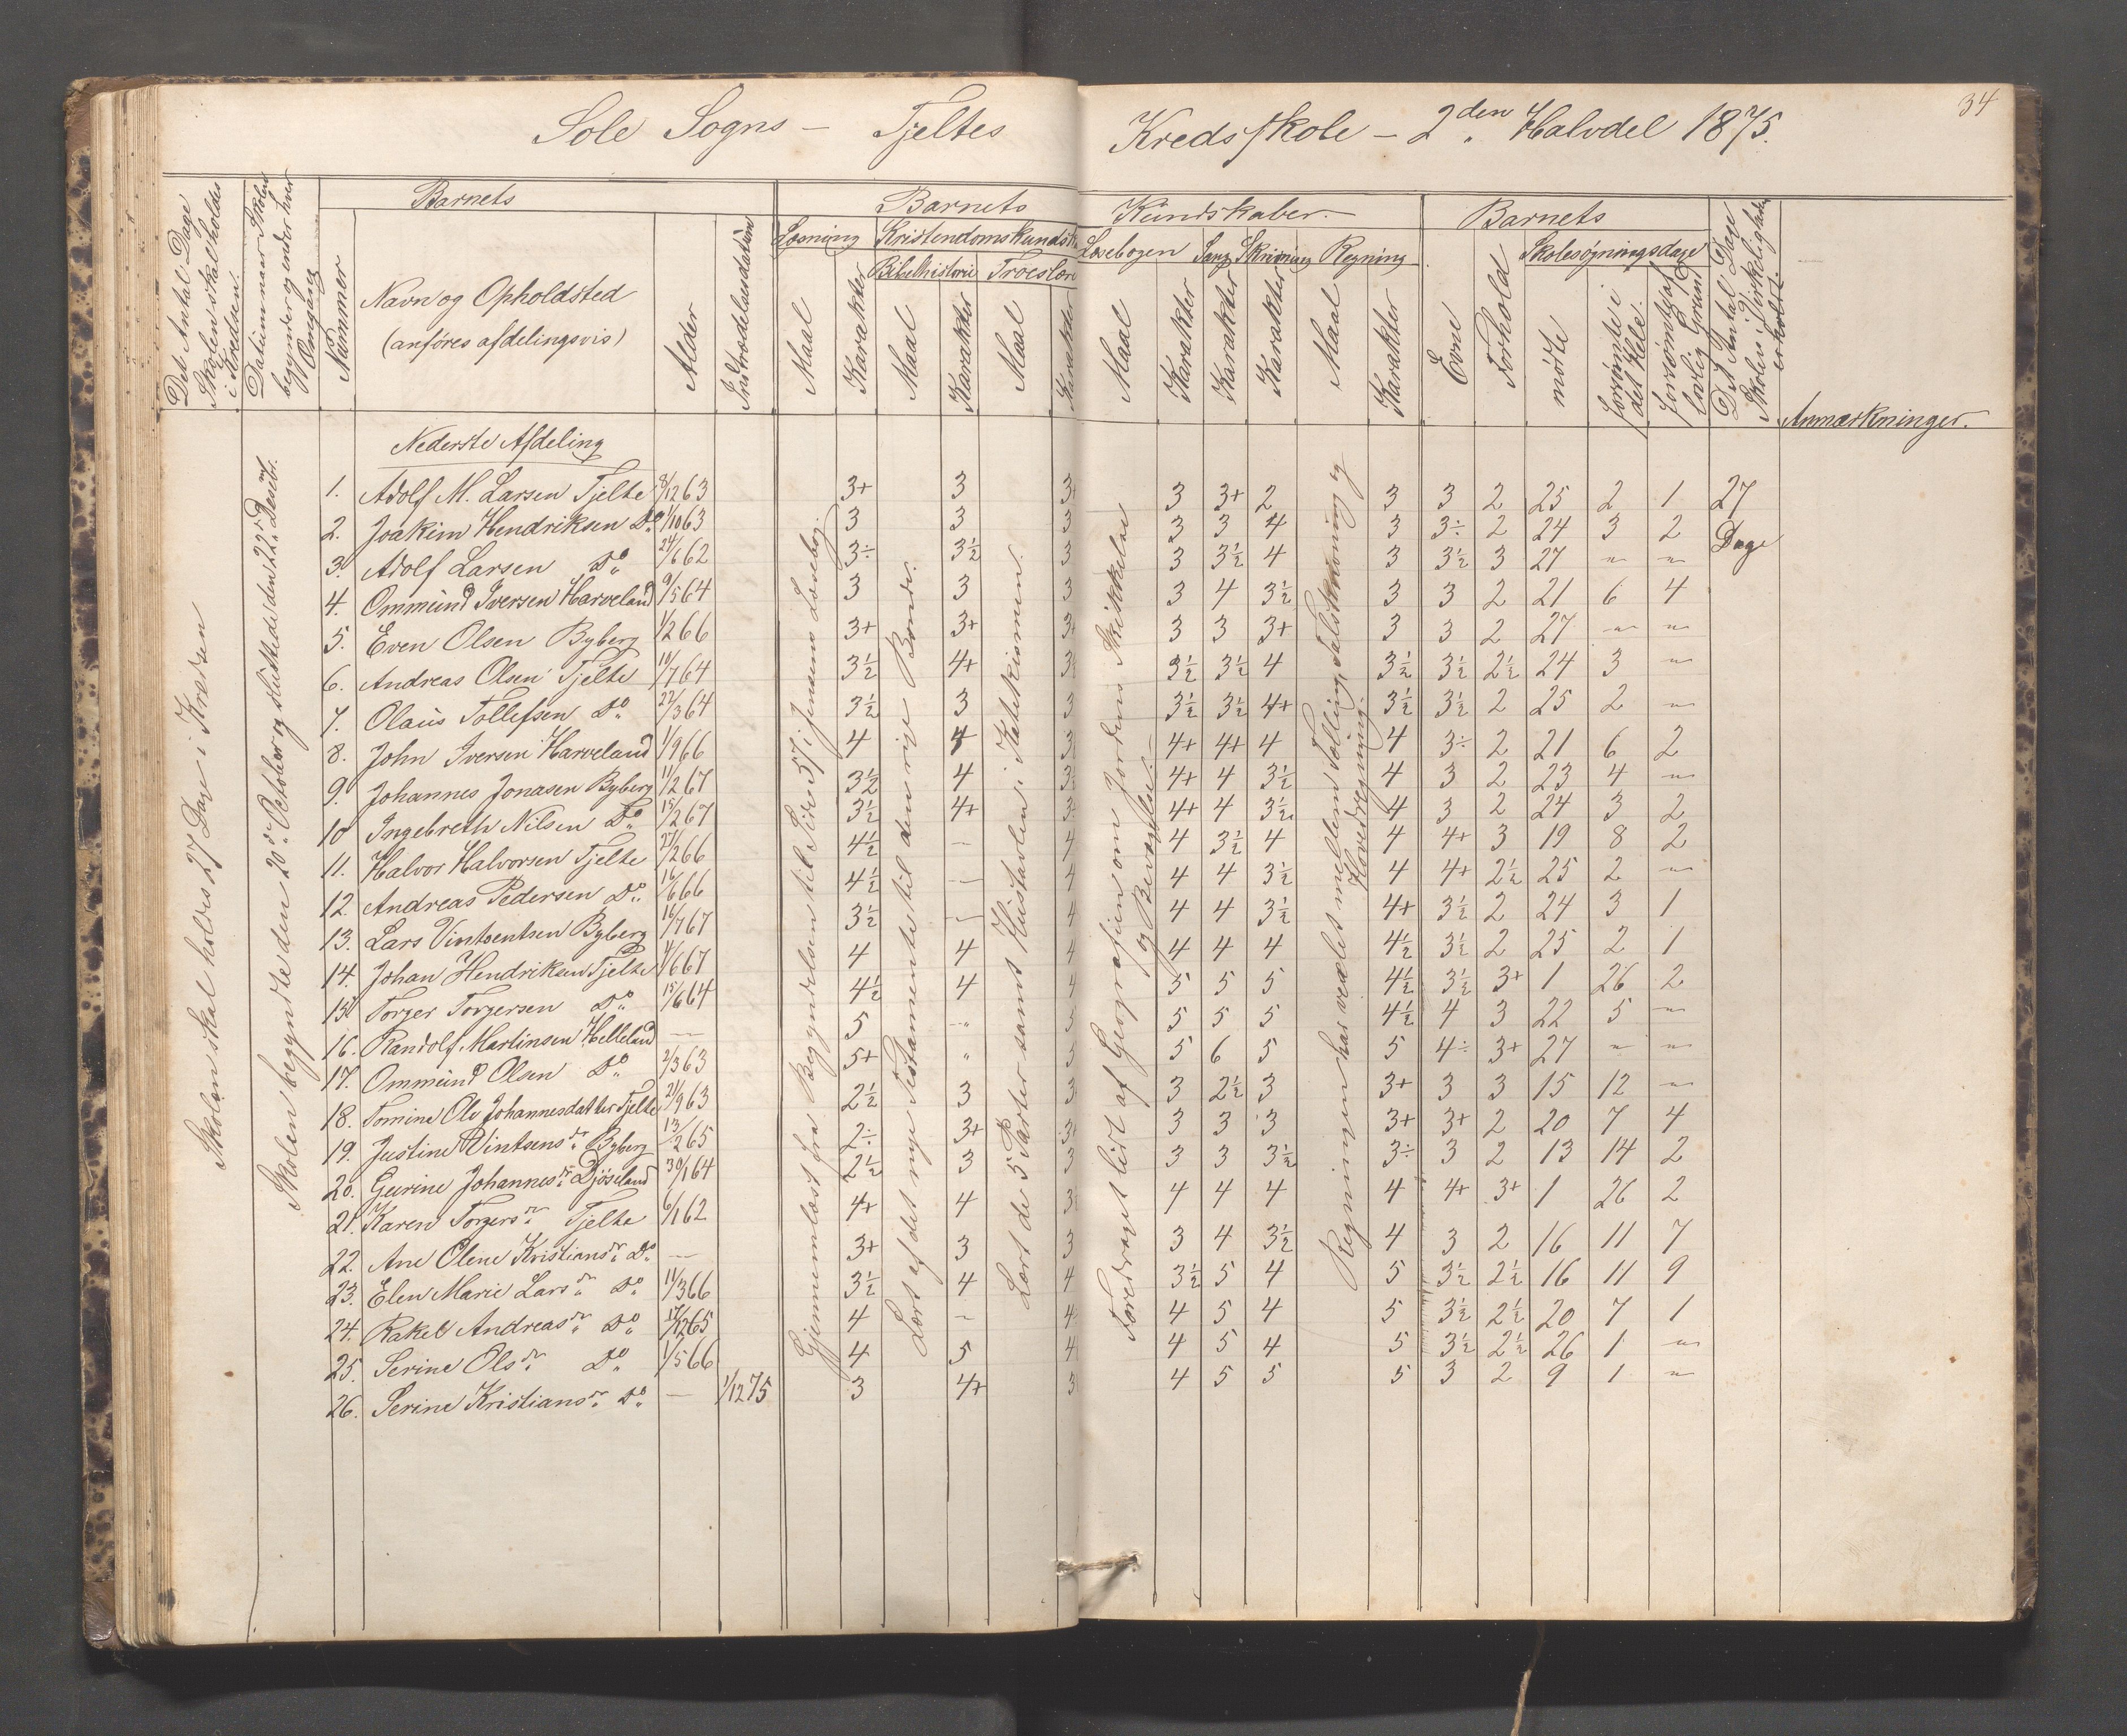 Sole Sogns – Tjeltes Kredsskole – 2den Halvdel 1875.
34
Det Antal Dage Skolen skal holdes i Kredsen.
Datum naar Skolen begynder og ender hver Omgang
Barnets
Nummer
Navn og Opholdsted (anføres afdelingsvis)
Alder
Indtrædelsesdatum
Barnets Kundskaber.
Læsning
Maal
Karakter
Kristendomskundsk
Bibelhistorie
Maal
Karakter
Troeslære
Maal
Karakter
Læsebogen
Maal
Karakter
Sang
Karakter
Skrivning
Karakter
Regning
Maal
Karakter
Barnets
Evne
Forhold
Skolesøgningsdage
mødte
forsømte i det Hele.
forsømte af lovlig Grund
Det Antal Dage Skolen i Virkeligheden er holdt.
Anmærkninger.
Skolen skal holdes 27 Dage i Kredsen
Skolen begyndte den 20de October og sluttede den 22de Decbr.
Nederste Afdeling
Gjennemlæst fra Begyndelsen til Side 57 i Jensens Læsebog.
Lært af det nye Testamente til den rige Bonde.
Lært de 5 Parter samt Hustavlen i Katekismen.
Foredraget lidt af Geografien om Jordens Skikkelse og Bevægelse.
Regningen har vexlet mellem Tælling, Talskrivning og Hovedregning.
1. Adolf M. Larsen Tjelte 8/12 63 3+ 3 3+ 3 3+ 2 3 3 2 25 2 1 27
2. Joakim Hendriksen Do 1/10 63 3 3 3 3 3 4 3 3÷ 2 24 3 2 Dage
3. Adolf Larsen Do 24/6 62 3÷ 3½ 3 3 3½ 4 3 3½ 3 27 " "
4. Ommund Iversen Harveland 9/5 64 3 3 3 3 4 3½ 3 3 2 21 6 4
5. Even Olsen Byberg 1/2 66 3+ 3+ 3+ 3 3 3+ 3 3 2 27 " "
6. Andreas Olsen Tjelte 10/7 64 3½ 4+ 3½ 3½ 3½ 4 3½ 3½ 2½ 24 3 "
7. Olaus Tollefsen Do 22/3 64 3½ 3 3 3½ 3½ 4+ 3½ 3½ 2 25 2 "
8. John Iversen Harveland 1/9 66 4 4 3 4+ 4+ 4 4 3÷ 2 21 6 2
9. Johannes Jonasen Byberg 11/2 67 3½ 4 3½ 4+ 4 3½ 4 3 2 23 4 "
10 Ingebreth Nilsen Do 15/2 67 3½ 4+ 3 4+ 4 3½ 4 3 2 24 3 2
11. Halvor Halvorsen Tjelte 27/2 66 4½ – 4 4 3½ 4 4 4+ 3 19 8 2
12. Andreas Pedersen Do 16/6 66 4½ – 4 4 4 3½ 4 4+ 2½ 25 2 "
13. Lars Vintsentsen Byberg 16/7 67 3½ – 4 4 4 3½ 4+ 3½ 2 24 3 1
14. Johan Hendriksen Tjelte 4/6 67 4 4 4 4 4 4 4½ 3½ 2 25 2 1
15 Torger Torgersen Do 15/6 64 4½ 4 4 5 5 5 4½ 3½ 3+ 1 26 2
16. Randolf Martinsen Helleland — 5 " 5 5 5 5 4½ 4 3 22 5 "
17. Ommund Olsen Do 2/3 63 5+ " 5 5 6 5 5 4÷ 3+ 27 " "
18. Tomine Ole Johannesdatter Tjelte 21/9 63 2½ 3 3 3 2½ 3 3+ 3 3 15 12 "
19. Justine Vintsensdr Byberg 13/2 65 2÷ 3+ 3+ 3 3 3 3+ 3+ 2 20 7 4
20. Gurine Johannesdr Djøseland 30/1 64 2½ 3 3 3 3 3½ 3÷ 3 2 13 14 2
21. Karen Torgersdr Tjelte 6/1 62 4+ 4 3½ 4 4 4 4 4+ 3+ 1 26 2
22. Ane Olene Kristiansdr Do — 3+ 3 3 3 4 3½ 4 3 2 16 11 7
23. Elen Marie Larsdr Do 11/3 66 3½ 4 4 3½ 5 4 5 3½ 2½ 16 11 9
24. Rakel Andreasdr Do 17/12 65 4 – 4 4 5 4 5 3½ 2½ 20 7 1
25. Serine Olsdr Do 1/5 66 4 5 4 4 5 4 5 3½ 2½ 26 1 "
26. Serine Kristiansdr Do — 1/12 75 3 4+ 3 4 5 5 5 3 2 9 1 "